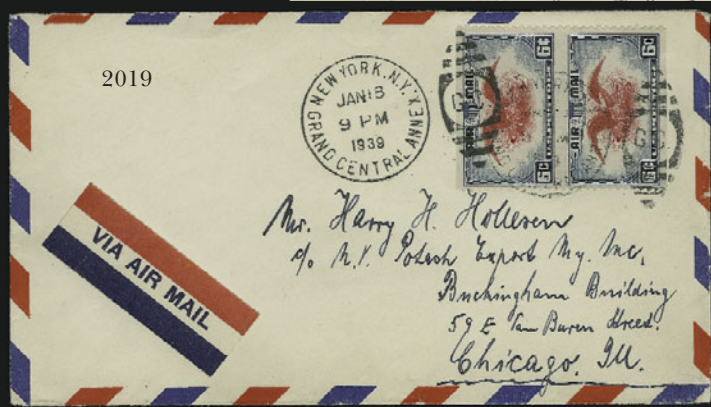 2019
NEW YORK, N.Y.
JAN 18
9 PM
1939
GRAND CENTRAL ANNEX.
AIR MAIL
6¢
6¢
AIR MAIL
6¢
6¢
VIA AIR MAIL
Mr. Harry H.
c/o N.V. Potash Export My. Inc,
Buckingham Building
59 E Van Buren Street.
Chicago. Ill.